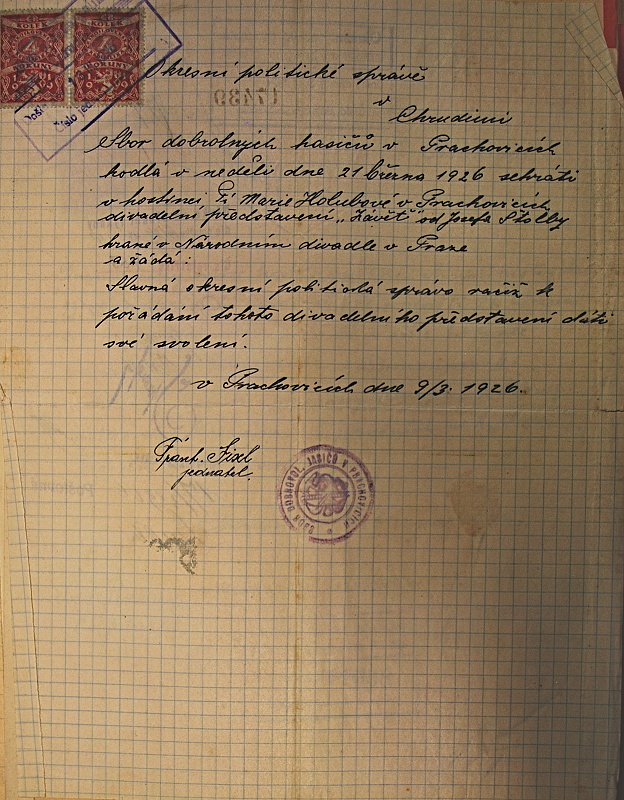 KOLEK KOLEK
4 4
KORUNY KORUNY
Došlo
Číslo jed
Okresní politické správě
v
Chrudimi
17439
Sbor dobrolných hasičů v Prachovicích
hodlá v neděli dne 21 března 1926 sehráti
v hostinci, Pí Marie Holubové v Prachovicích
divadelní představení „Závěť" od Josefa Štolby
hrané v Národním divadle v Praze
a žádá:
Slavná okresní politická správo račiž k
pořádání tohoto divadelního představení dáti
své svolení.
v Prachovicích dne 9/3. 1926.
Frant. Fixl
jednatel.
SBOR DOBROVOL. HASIČŮ V PRACHOVICÍCH